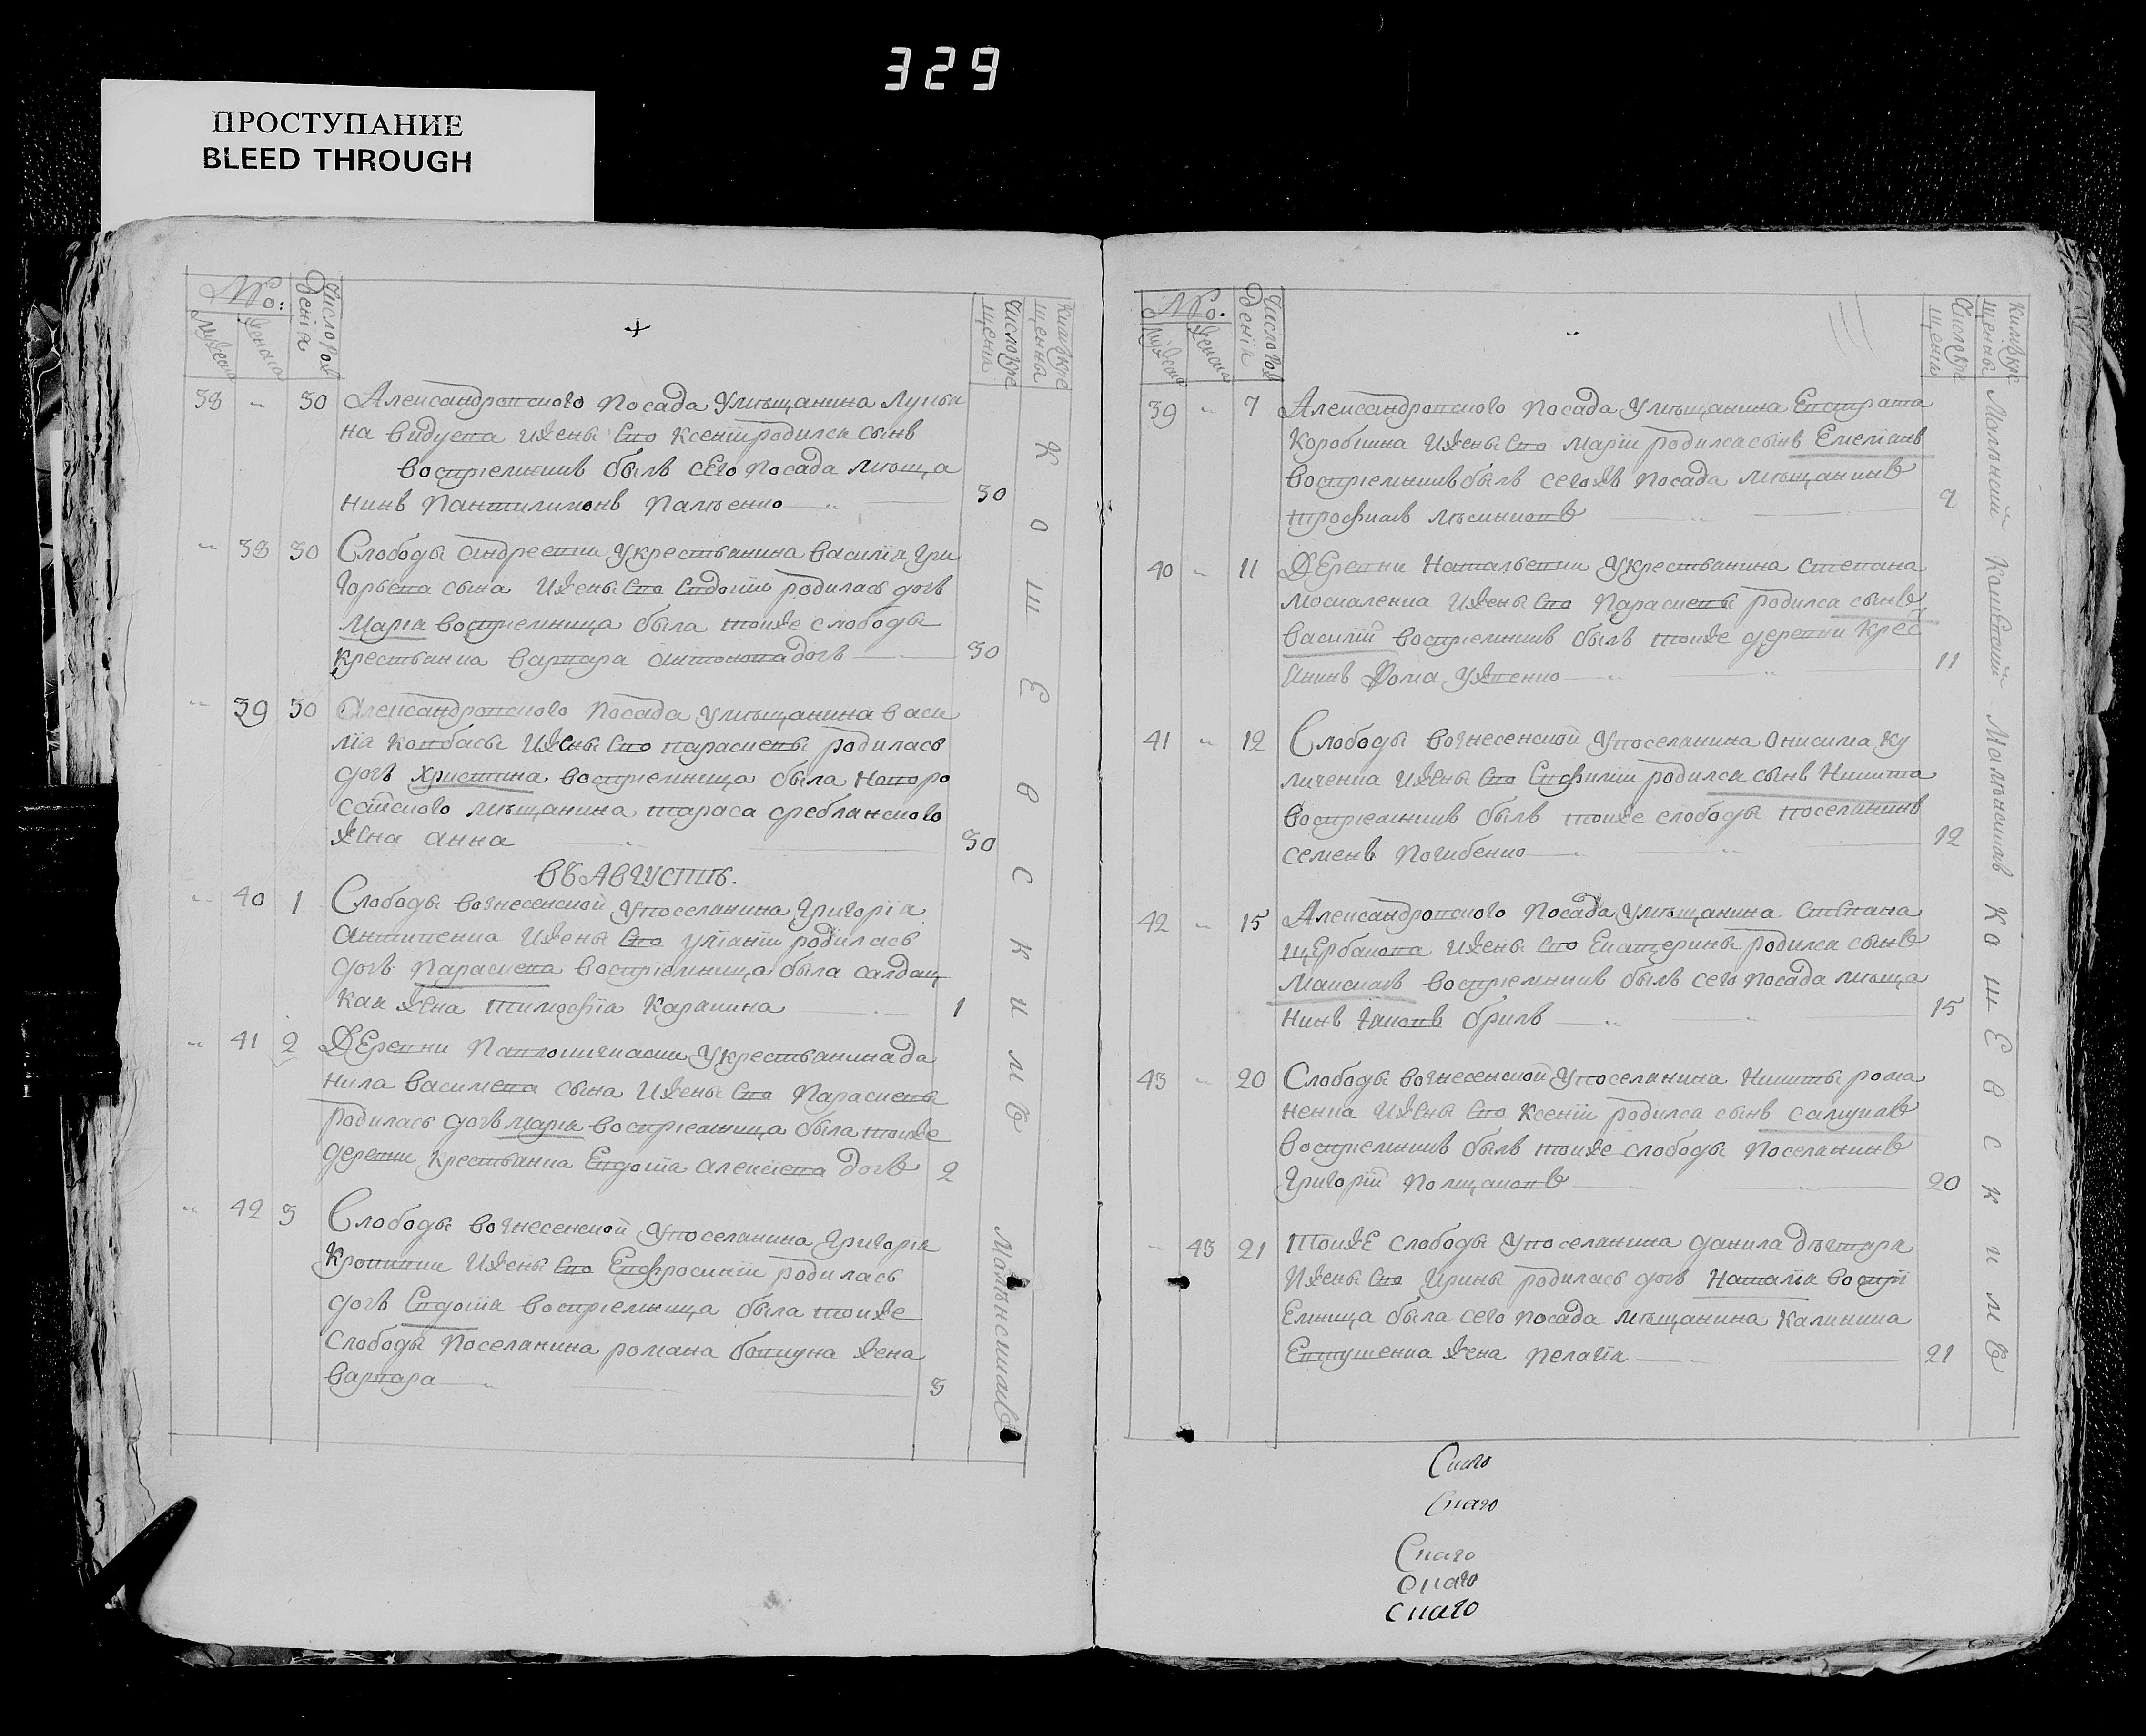 329
ПРОСТУПАНИЕ
BLEED THROUGH
No:
мужеска
женска
Число рож
денія
Число кре
щенія
Кимъ кре
щенны
38 " 30 Александровского посада у мѣщанина Лукы
на видуева и жены Его Ксеніи родился сынъ
воспріемникъ былъ сего посада мѣща
нинъ Пантилимонъ Палѣенко 30
" 38 30 Слободы андреевки у крестьянина василія Гри
горьева сына и жены Его Евдокіи родилась дочь
Марія воспріемница была тойже слободы
крестьянка варвара антонова дочь 30
" 39 30 Александровского посада у мѣщанина васи
лія Ковбасы и жены Его парасковеи родилась
дочь Христина воспріемница была
мѣщанина тараса среблянского
жена анна 30
въ августѣ.
" 40 1 Слободы вознесенской у поселянина Григорія
антипенка и жены Его уліаніи родилась
дочь Парасковея воспріемница была салдац
кая жена тимофія Каравина 1
" 41 2 Деревни у крестьянина да
нила василиева сына и жены Его Парасковеи
родилась дочь марія воспріемница была тойже
деревни крестьянка Евдокія алексіева дочь 2
" 42 3 Слободы вознесенской у поселянина Григорія
Кропивки и жены Его Евфросиніи родилась
дочь Евдокія воспріемница была тойже
слободы поселянина романа бовкуна жена
варвара 3
К о ш е в с к и м ъ
No.
мужеска
женска
Число рож
денія
Число кре
щенія
Кимъ кре
щенны
39 " 7 Александровского посада у мѣщанина Евстрата
Коробкина и жены Его Маріи родился сынъ Емеліанъ
воспріемникъ былъ сегожъ посада мѣщанинъ
трофимъ 9
40 " 11 Деревни Натальевки у крестьянина степана
москаленка и жены Его Парасковеи родился сынъ
василій воспріемникъ былъ тойже деревни крес
янинъ Фома Ужвенко 11
41 " 12 Слободы вознесенской у поселянина Онисима Ку
личенка и жены Его Евфиміи родился сынъ Никита
воспріемникъ былъ тойже слободы поселянинъ
семенъ Погибенко 12
42 " 15 Александровского посада у мѣщанина степана
щербакова и жены Его Екатерины родился сынъ
Максимъ воспріемникъ былъ сего посада мѣща
нинъ Яковъ бриль 15
43 " 20 Слободы вознесенской у поселянина Никиты рома
ненка и жены Его Ксеніи родился сынъ
воспріемникъ былъ тойже слободы поселянинъ
Григорій Полщаковъ 20
" 43 21 тойже слободы у поселянина данила дѣгтяря
и жены Его Ирины родилась дочь Наталія воспрі
емница была сего посада мѣщанина Калиника
Евтушенка жена пелагія 21
К о ш е в с к и м ъ